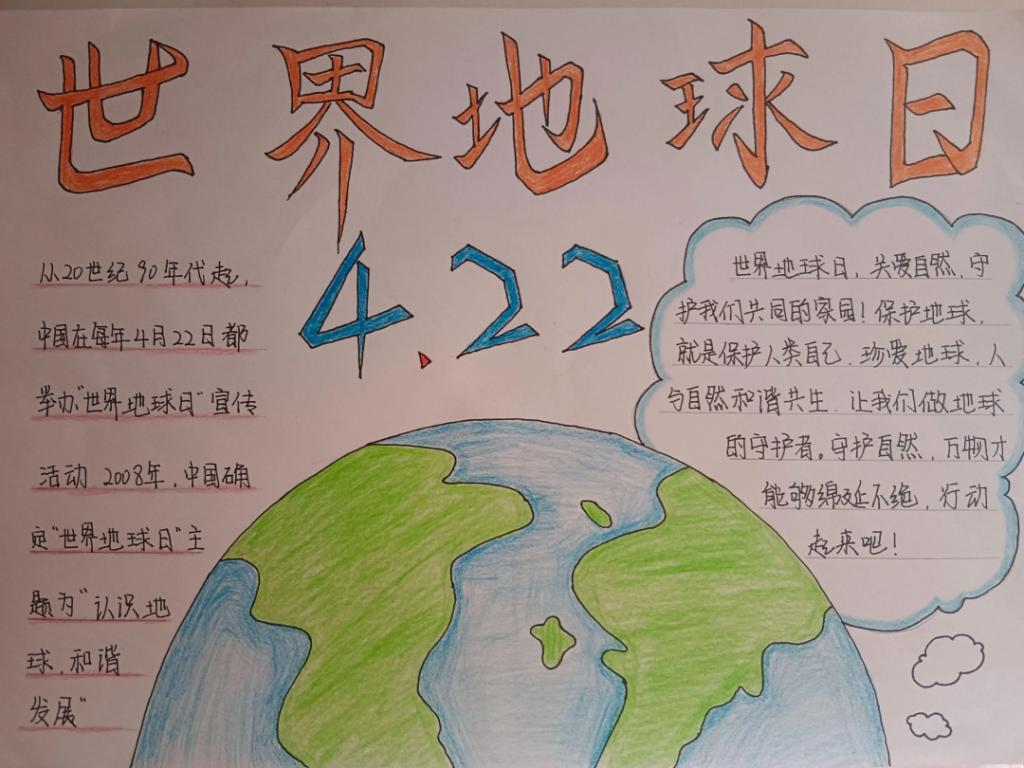 世界地球日
4.22
从20世纪90年代起,
中国在每年4月22日都
举办"世界地球日"宣传
活动 2008年,中国确
定"世界地球日"主
题为"认识地
球,和谐
发展"
世界地球日,关爱自然,守
护我们共同的家园!保护地球,
就是保护人类自己.珍爱地球,人
与自然和谐共生.让我们做地球
的守护者。守护自然,万物才
能够绵延不绝,行动
起来吧!